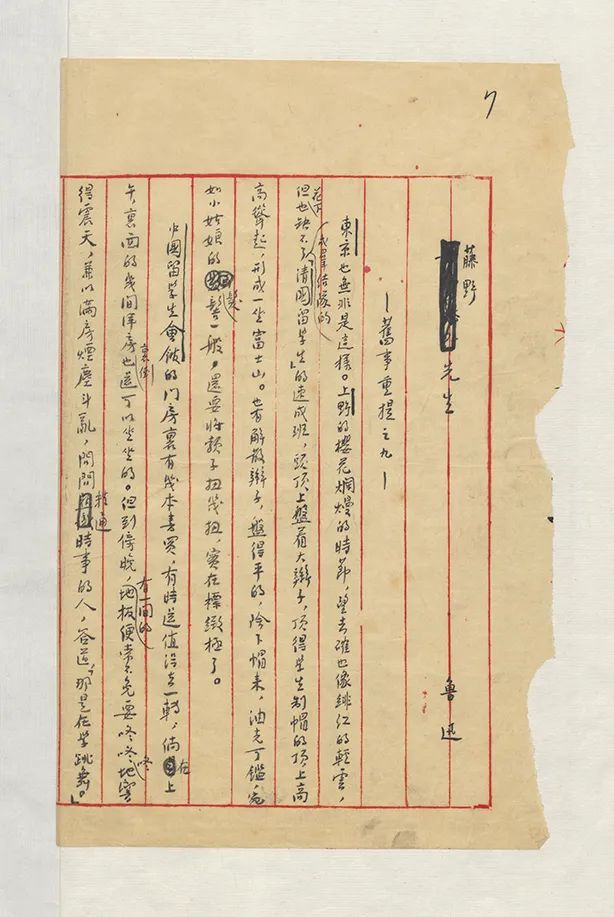 7
藤野先生 魯迅
—舊事重提之九—
東京也無非是這樣。上野的櫻花爛熳的時節，望去確也像緋紅的輕雲，
但花下也缺不了成羣結隊的「清國留學生」的速成班，頭頂上盤着大辮子，頂得學生制帽的頂上高
高聳起，形成一坐富士山。也有解散辮子，盤得平的，除下帽來，油光可鑑，宛
如小姑娘的髮髻一般，還要將頸子扭幾扭，實在標緻極了。
中國留學生會館的门房裏有幾本書買，有時還值得去一轉，倘在上
午，裏面的幾間洋房裏倒也還可以坐坐的。但到傍晚，有一間的地板便常不免要咚咚咚地響
得震天，兼以滿房煙塵斗亂，問問精通時事的人，答道，「那是在學跳舞。」